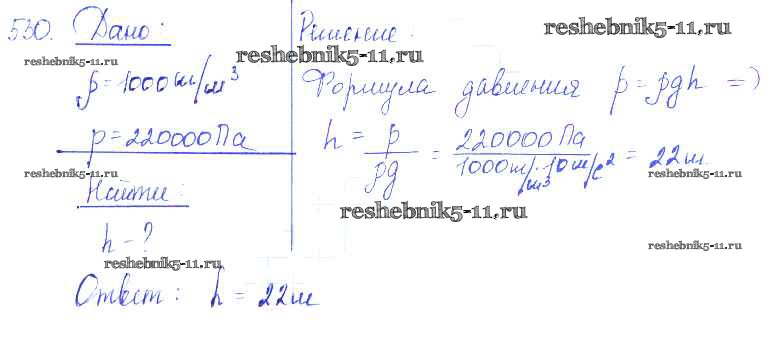 530. Дано:
reshebnik5-11.ru
ρ = 1000 кг/м³
p = 220000 Па
reshebnik5-11.ru
Найти:
h - ?
reshebnik5-11.ru
Решение:
reshebnik5-11.ru
reshebnik5-11.ru
Формула давления p = ρgh =>
h = p/ρg = 220000 Па/1000 /м³ · 10 м/с² = 22 м.
reshebnik5-11.ru
reshebnik5-11.ru
reshebnik5-11.ru
Ответ: h = 22 м